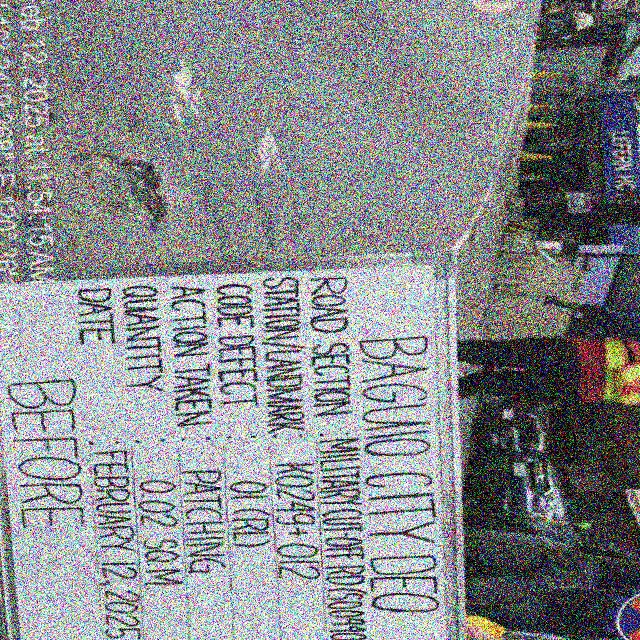 BAGUIO CITY DEO
ROAD SECTION : MILITARY CUT-OFF RD
STATION/LANDMARK : K0249+012
CODE DEFECT : 01 (RD)
ACTION TAKEN : PATCHING
QUANTITY : 0.02 SQ.M
DATE : FEBRUARY 12, 2025
BEFORE
12, 2025 at 11:54:15 AM